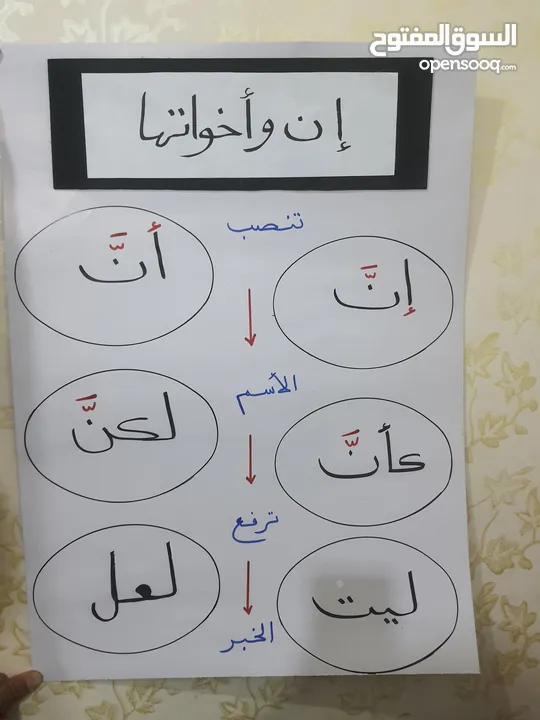 السوق المفتوح
opensooq.com
إن وأخواتها
تنصب
إنَّ
أنَّ
الأسم
كأنَّ
لكنَّ
ترفع
ليت
لعل
الخبر